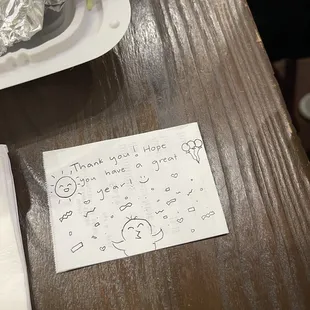 Thank you! Hope
you have a great
year! :)